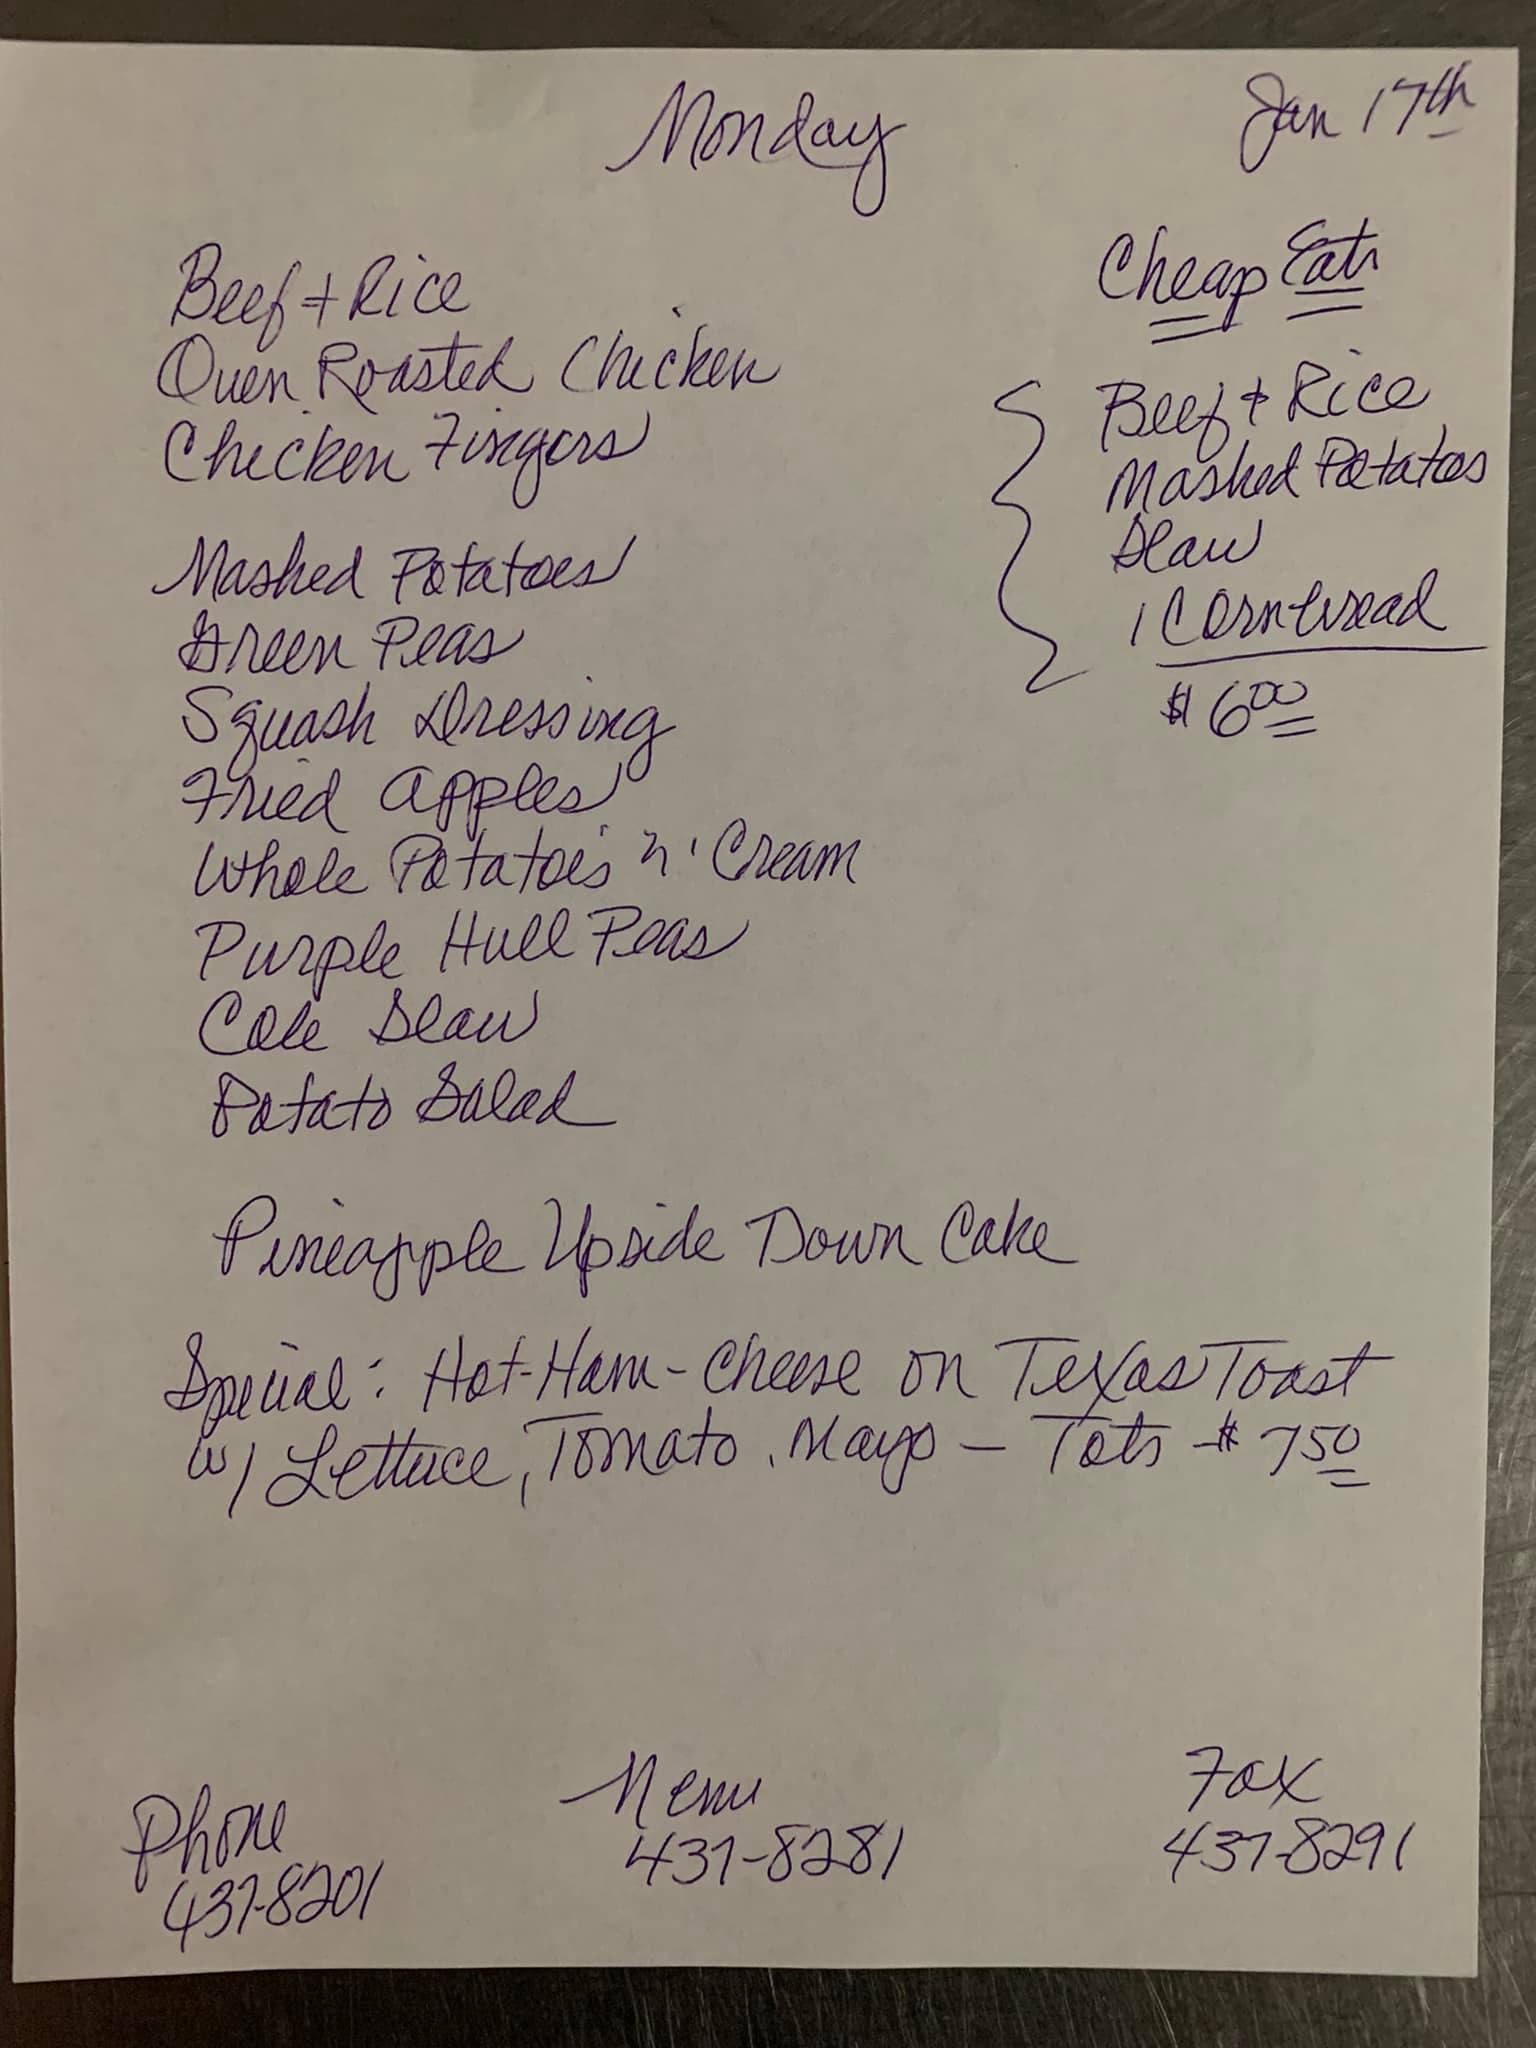 Monday
Jan 17th
Beef + Rice
Oven Roasted Chicken
Chicken Fingers
Mashed Potatoes
Green Peas
Squash Dressing
Fried Apples
Whole Potatoes 'n' Cream
Purple Hull Peas
Cole Slaw
Potato Salad
Pineapple Upside Down Cake
Cheap Eats
Beef + Rice
Mashed Potatoes
Slaw
1 Cornbread
$6.00
Special: Hot-Ham-Cheese on Texas Toast
w/ Lettuce, Tomato, Mayo - Tots - $7.50
Phone
437-8201
Menu
437-8281
Fax
437-8291